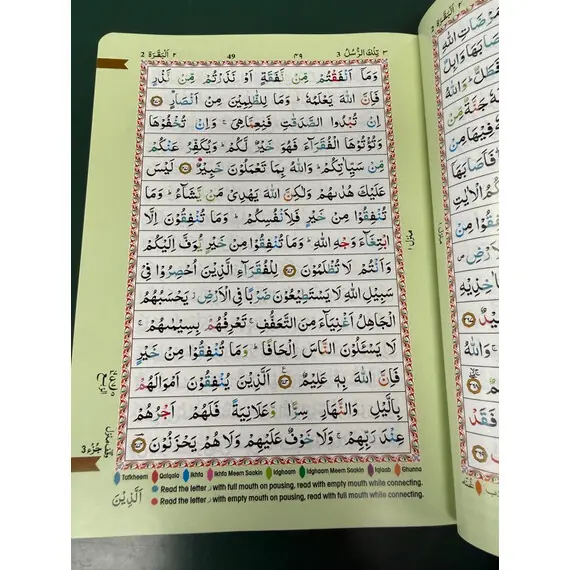 2 اَلْبَقَرَة ٢
49
٤٩
تِلْكَ الرُّسُلُ 3 ٣
وَمَاۤ اَنْفَقْتُمْ مِّنْ نَّفَقَةٍ اَوْ نَذَرْتُمْ مِّنْ نَّذْرٍ
فَاِنَّ اللّٰهَ يَعْلَمُهٗ ؕ وَمَا لِلظّٰلِمِيْنَ مِنْ اَنْصَارٍ ۝۲۷۰
اِنْ تُبْدُوا الصَّدَقٰتِ فَنِعِمَّا هِىَ ۚ وَاِنْ تُخْفُوْهَا
وَتُؤْتُوْهَا الْفُقَرَآءَ فَهُوَ خَيْرٌ لَّكُمْ ؕ وَيُكَفِّرُ عَنْكُمْ
مِّنْ سَيِّاٰتِكُمْ ؕ وَاللّٰهُ بِمَا تَعْمَلُوْنَ خَبِيْرٌ ۝۲۷۱ لَيْسَ
عَلَيْكَ هُدٰٮهُمْ وَلٰكِنَّ اللّٰهَ يَهْدِىْ مَنْ يَّشَآءُ ؕ وَمَا
تُنْفِقُوْا مِنْ خَيْرٍ فَلِاَنْفُسِكُمْ ؕ وَمَا تُنْفِقُوْنَ اِلَّا
ابْتِغَآءَ وَجْهِ اللّٰهِ ؕ وَمَا تُنْفِقُوْا مِنْ خَيْرٍ يُّوَفَّ اِلَيْكُمْ
وَاَنْتُمْ لَا تُظْلَمُوْنَ ۝۲۷۲ لِلْفُقَرَآءِ الَّذِيْنَ اُحْصِرُوْا فِىْ
سَبِيْلِ اللّٰهِ لَا يَسْتَطِيْعُوْنَ ضَرْبًا فِى الْاَرْضِ ز يَحْسَبُهُمُ
الْجَاهِلُ اَغْنِيَآءَ مِنَ التَّعَفُّفِ ۚ تَعْرِفُهُمْ بِسِيْمٰٮهُمْ ۚ
لَا يَسْـَٔلُوْنَ النَّاسَ اِلْحَافًا ؕ وَمَا تُنْفِقُوْا مِنْ خَيْرٍ
فَاِنَّ اللّٰهَ بِهٖ عَلِيْمٌ ۝۲۷۳ اَلَّذِيْنَ يُنْفِقُوْنَ اَمْوَالَهُمْ
بِالَّيْلِ وَالنَّهَارِ سِرًّا وَّعَلَانِيَةً فَلَهُمْ اَجْرُهُمْ
عِنْدَ رَبِّهِمْ ۚ وَلَا خَوْفٌ عَلَيْهِمْ وَلَا هُمْ يَحْزَنُوْنَ ۝۲۷۴
منزل ۱
جُزْء 3
Tafkheem Qalqala Ikhfa Ikhfa Meem Saakin Idghaam Idghaam Meem Saakin Iqlaab Ghunna
Read the letter ر with full mouth on pausing, read with empty mouth while connecting.
Read the letter ر with empty mouth on pausing, read with full mouth while connecting.
اَلَّذِيْنَ